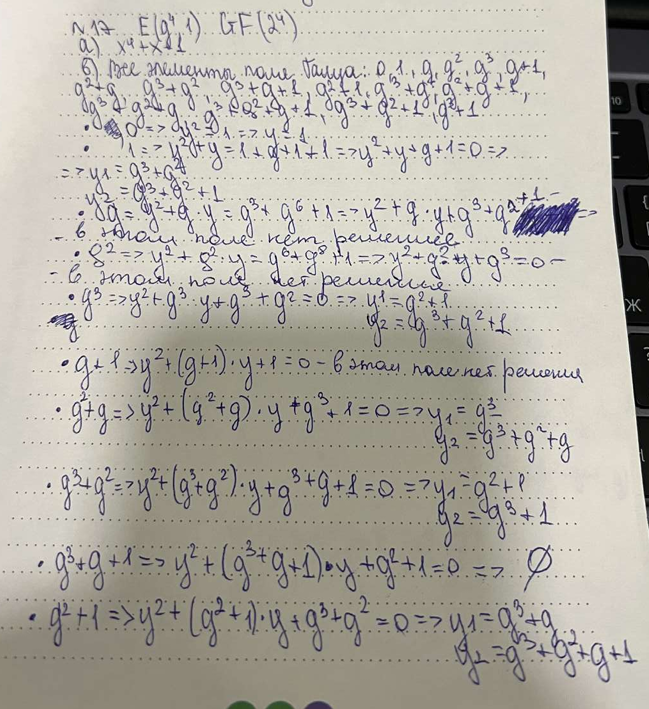 №17 E(g⁴,1) GF(2⁴)
а) x⁴+x+1
б) Все элементы поля Галуа: 0, 1, g, g², g³, g+1,
g²+g, g³+g², g³+g+1, g²+1, g³+g, g²+g+1,
g³+g²+g, g³+g²+g+1, g³+g²+1, g³+1
• 0 => y²=1 => y=1
• 1 => y²+y=1+g+1+1 => y²+y+g+1=0 =>
=> y1=g³+g²
y2=g³+g²+1
• g=y²+g·y=g³+g⁶+1 => y²+g·y+g³+g²+1 -
- в этом поле нет решение
• g² => y²+g²·y=g⁶+g⁸+1 => y²+g²·y+g³=0 -
- в этом поле нет решения
• g³ => y²+g³·y+g³+g²=0 => y1=g²+1
y2=g³+g²+1
• g+1 => y²+(g+1)·y+1=0 - в этом поле нет решения
• g²+g => y²+(g²+g)·y+g³+1=0 => y1=g³
y2=g³+g²+g
• g³+g² => y²+(g³+g²)·y+g³+g+1=0 => y1=g²+1
y2=g³+1
• g³+g+1 => y²+(g³+g+1)·y+g²+1=0 => ∅
• g²+1 => y²+(g²+1)·y+g³+g²=0 => y1=g³+g
y2=g³+g²+g+1